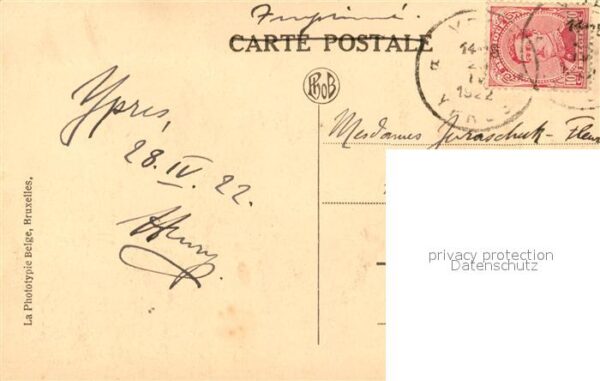 Imprimé.
CARTE POSTALE
PhoB
14
IV
1922
Mesdames
Ypres,
28. IV. 22.
Henry
La Phototypie Belge, Bruxelles.
privacy protection
Datenschutz